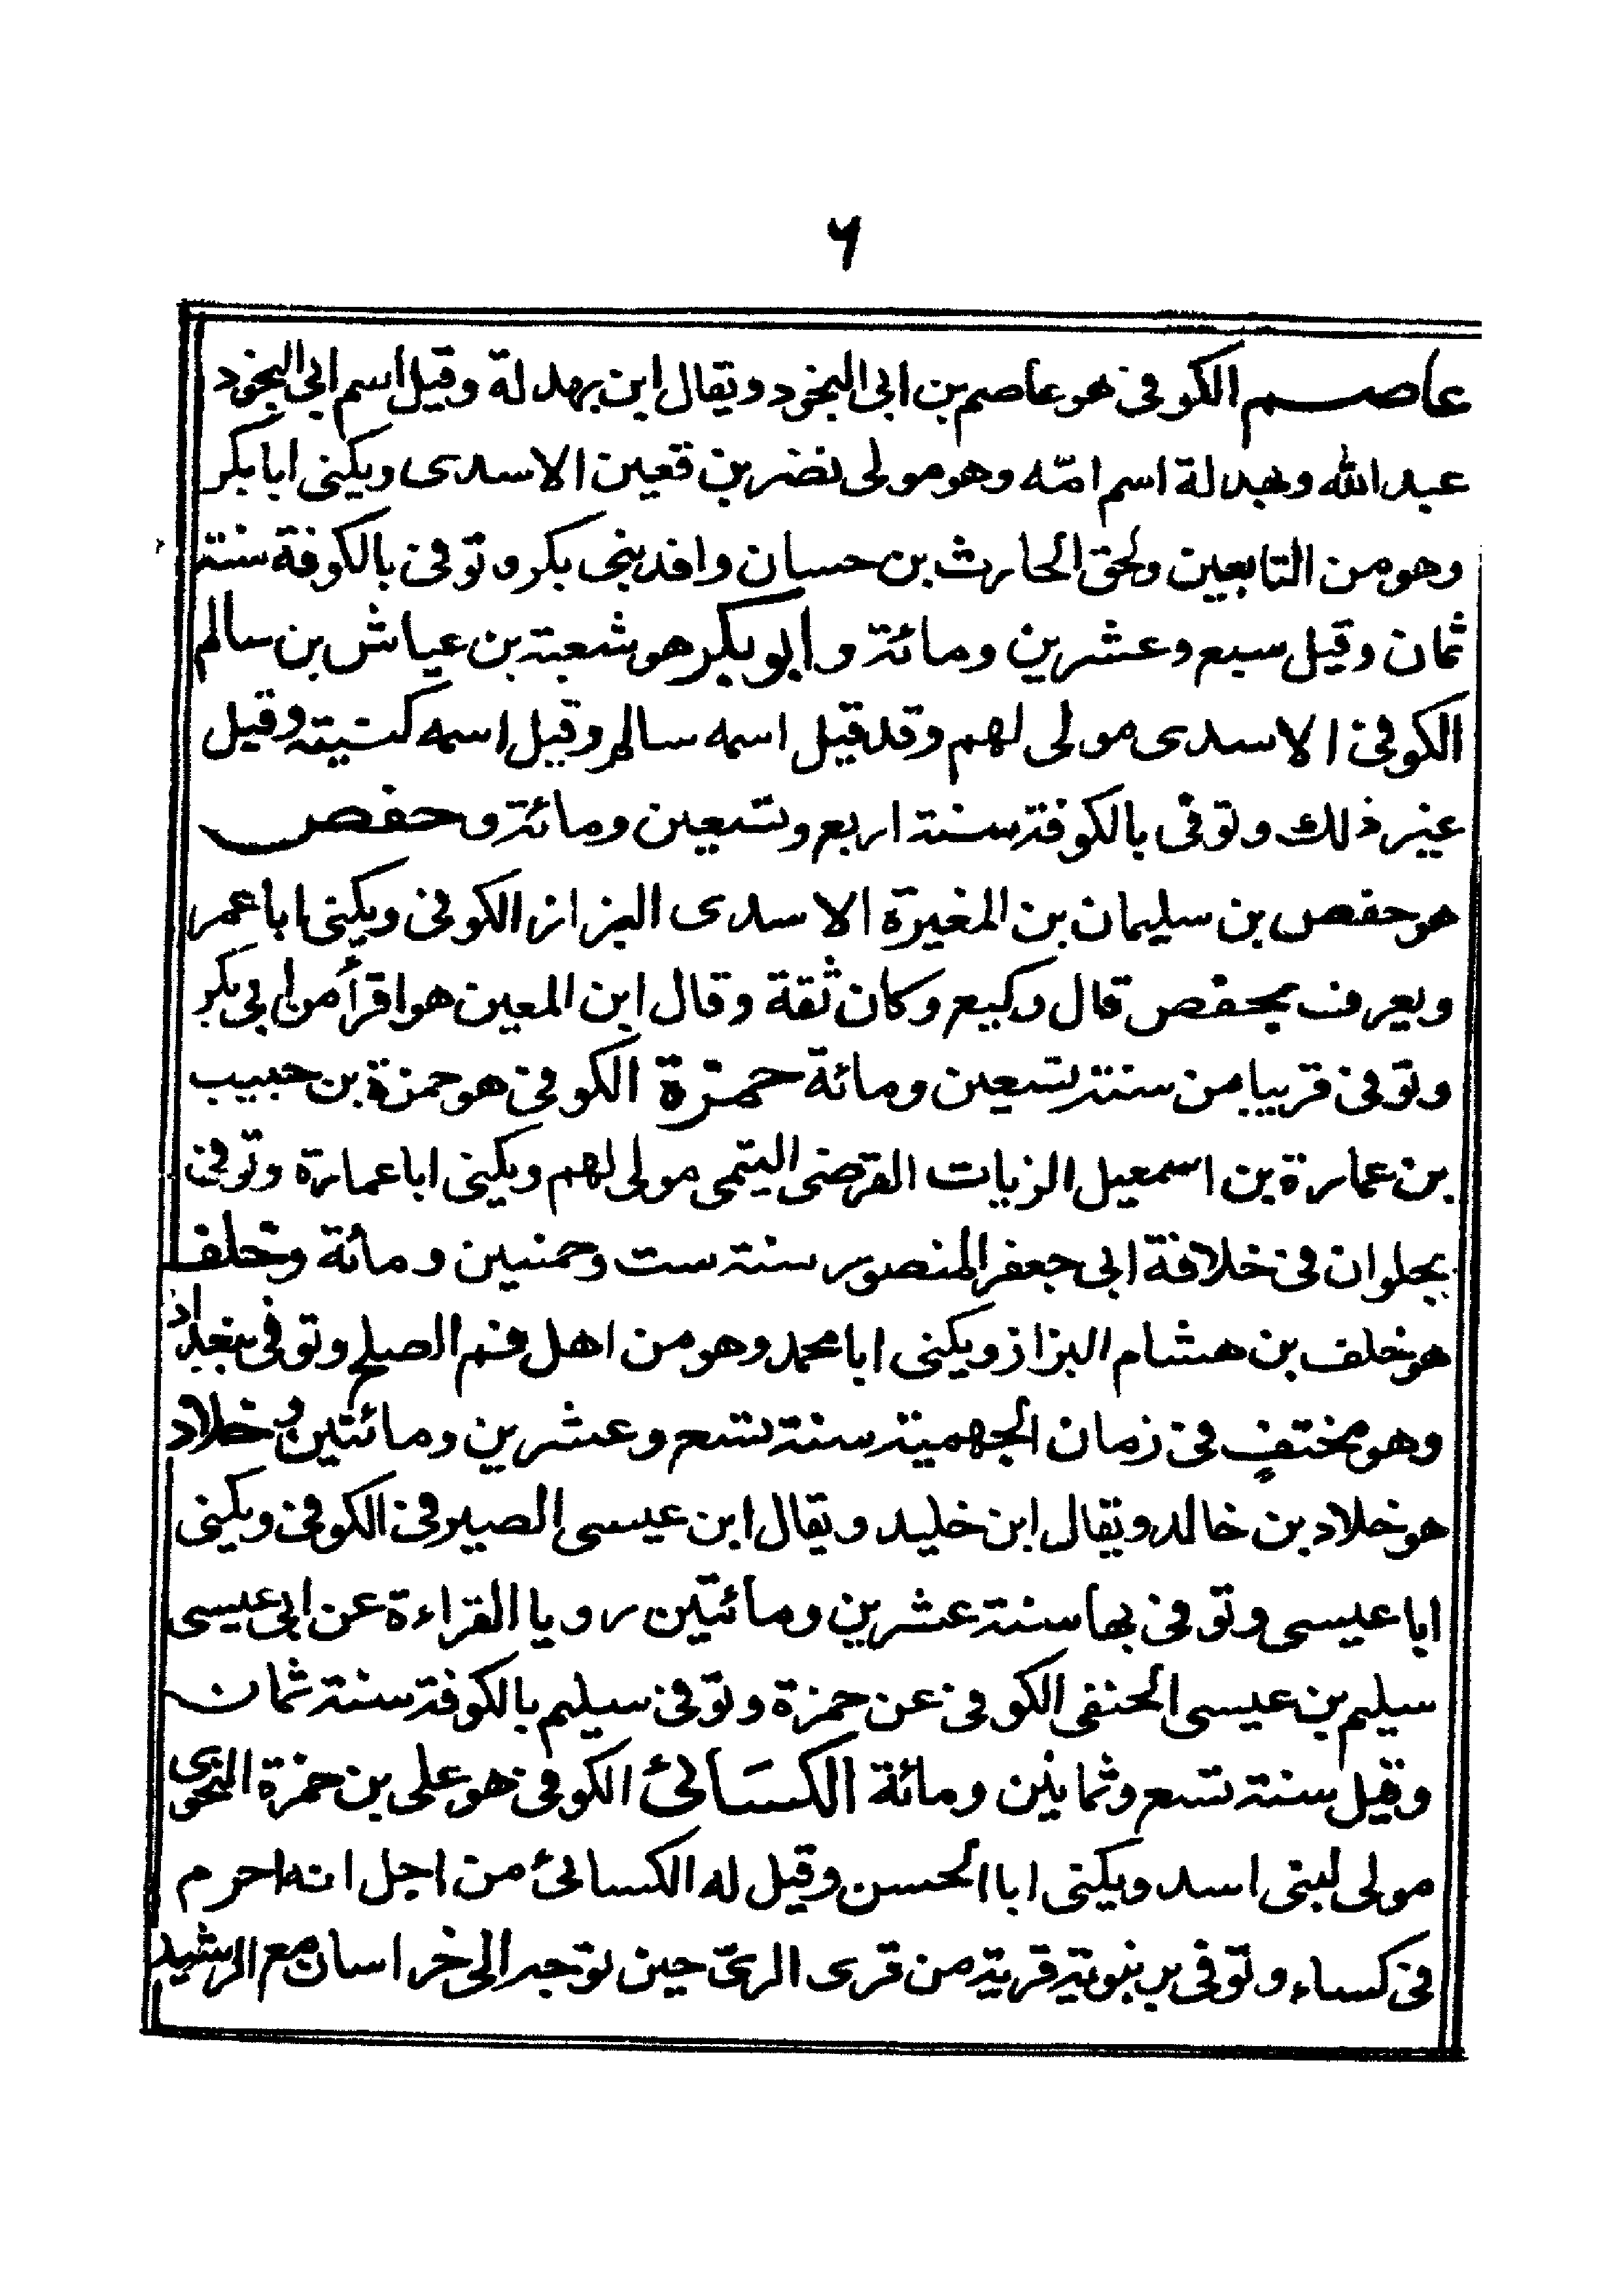 ٦
عاصم الكوفى هو عاصم بن ابى النجود ويقال ابن بهدلة وقيل اسم ابى النجود
عبد الله وبهدلة اسم امّه وهو مولى نضر بن قعين الاسدى ويكنى ابا بكر
وهو من التابعين ولحق الحارث بن حسان وافد بنى بكر وتوفى بالكوفة سنة
ثمان وقيل سبع وعشرين ومائة وابو بكر هو شعبة بن عياش بن سالم
الكوفى الاسدى مولى لهم وقد قيل اسمه سالم وقيل اسمه كنيته وقيل
غير ذلك وتوفى بالكوفة سنة اربع وتسعين ومائة وحفص
هو حفص بن سليمان بن المغيرة الاسدى البزاز الكوفى ويكنى ابا عمر
ويعرف بحفص قال وكيع وكان ثقة وقال ابن المعين هو اقرأ من ابى بكر
وتوفى قريبا من سنة تسعين ومائة حمزة الكوفى هو حمزة بن حبيب
بن عمارة بن اسمعيل الزيات القرضى التيمى مولى لهم ويكنى ابا عمارة وتوفى
بحلوان فى خلافة ابى جعفر المنصور سنة ست وخمسين ومائة وخلف
هو خلف بن هشام البزاز ويكنى ابا محمد وهو من اهل فم الصلح وتوفى ببغداد
وهو مختفٍ فى زمان الجهمية سنة تسع وعشرين ومائتين وخلاد
هو خلاد بن خالد ويقال ابن خليد ويقال ابن عيسى الصيرفى الكوفى ويكنى
ابا عيسى وتوفى بها سنة عشرين ومائتين رويا القراءة عن ابى عيسى
سليم بن عيسى الحنفى الكوفى عن حمزة وتوفى سليم بالكوفة سنة ثمان
وقيل سنة تسع وثمانين ومائة الكسَائى الكوفى هو على بن حمزة النحوى
مولى لبنى اسد ويكنى ابا الحسن وقيل له الكسائى من اجل انه احرم
فى كساء وتوفى برنبوية قرية من قرى الرىّ حين توجه الى خراسان مع الرشيد